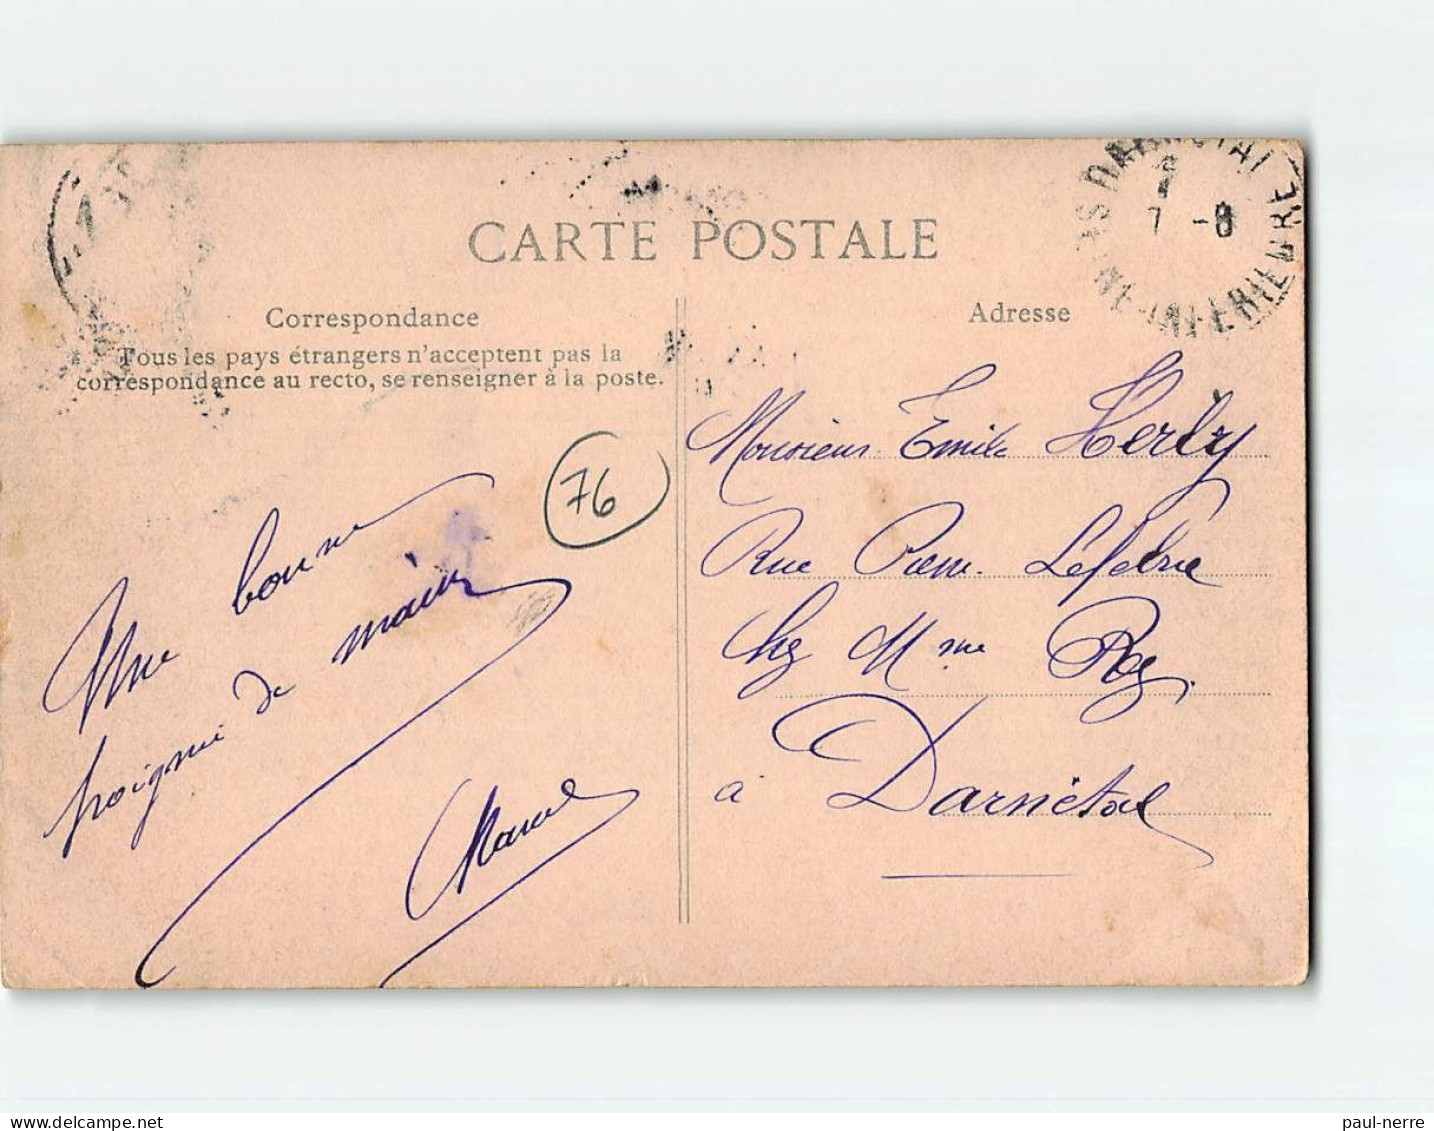 CARTE POSTALE
Correspondance
Tous les pays étrangers n'acceptent pas la
correspondance au recto, se renseigner à la poste.
76
Une bonne
poignée de main
Marcel
Adresse
Monsieur Emile Herly
Rue Pierre Lefebvre
Chez Mme
à Darnétal
DARNÉTAL
7 -8
SEINE-INFÉRIEURE
paul-nerre
delcampe.net